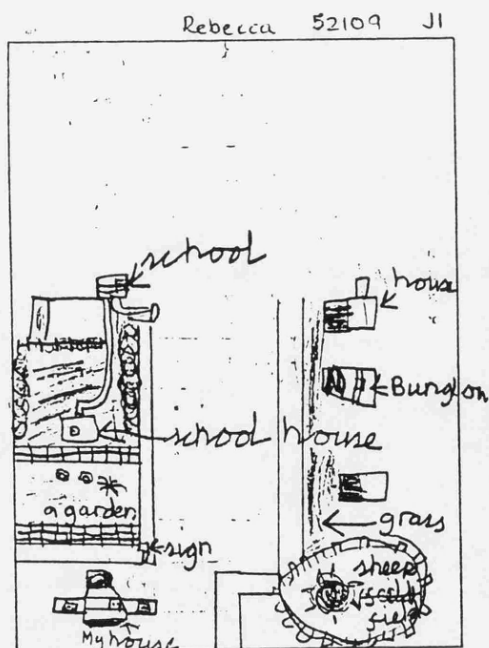 Rebecca 52109 J1
school
house
Bunglon
school house
a garden
grass
sign
sheep
field
My house